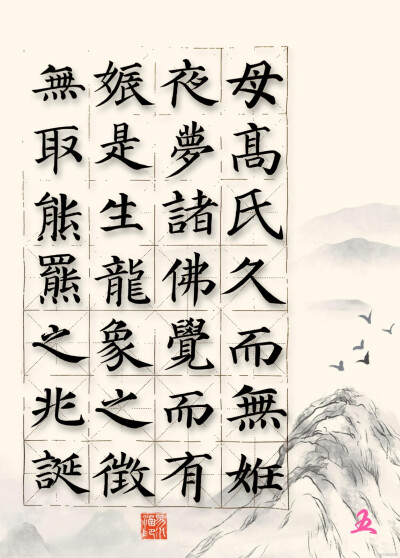 母髙氏久而無姙
夜夢諸佛覺而有
娠是生龍象之徵
無取熊羆之兆誕
五